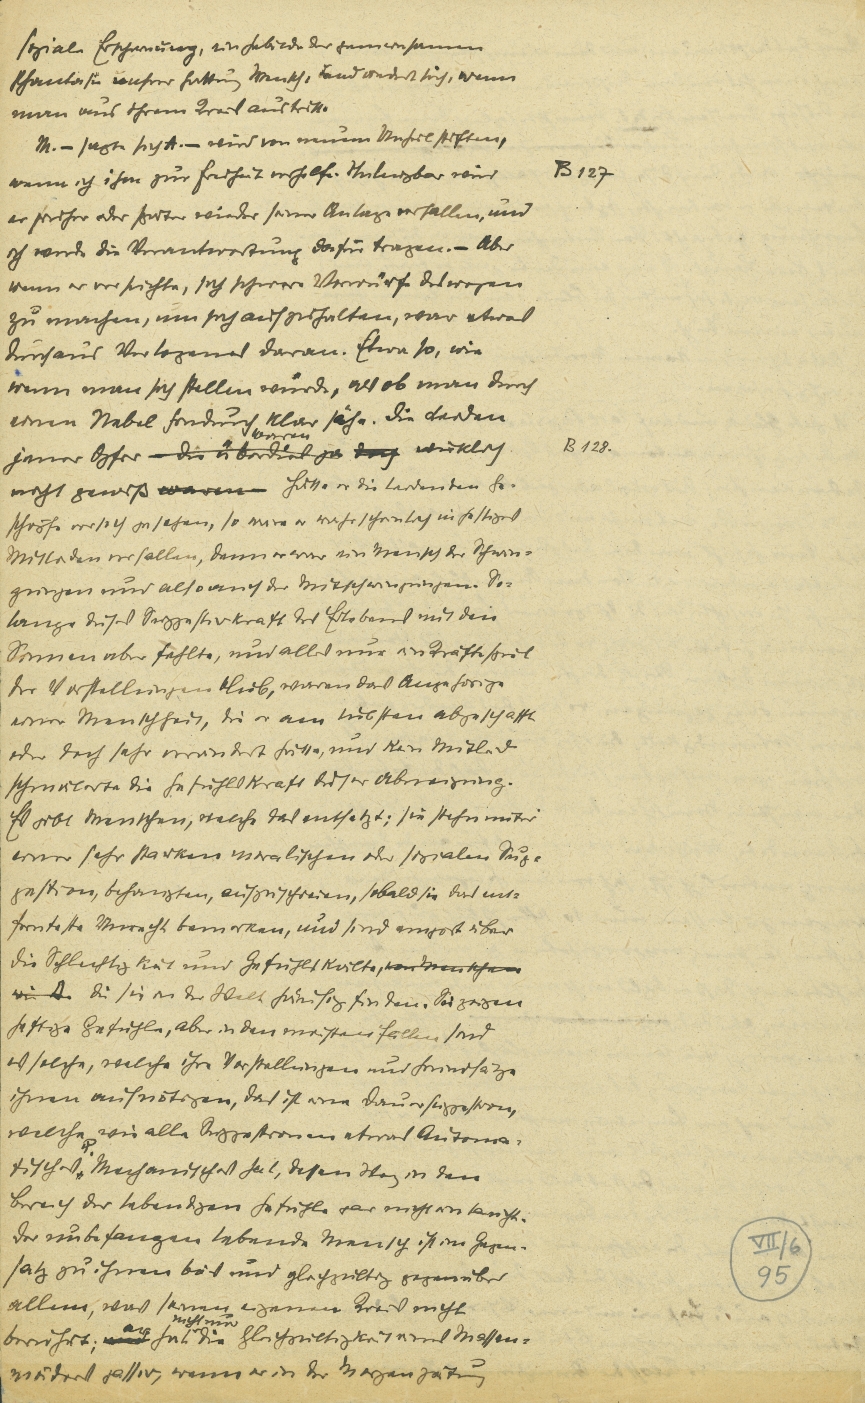 soziale Erscheinung, ein Gebilde der gemeinsamen
Phantasie unsrer Gattung Mensch, und ändert sich, wenn
man aus ihrem Kreis austritt.
M. – sagte sich A. – wird von neuem Unheil stiften,
wenn ich ihm zur Freiheit verhelfe. Unleugbar wird
B 127
er früher oder später wieder seiner Anlage verfallen, und
ich werde die Verantwortung dafür tragen. – Aber
wenn er versuchte, sich schwere Vorwürfe deswegen
zu machen, um sich aufzuhalten, war etwas
durchaus Verlogenes daran. Etwa so, wie
wenn man sich stellen würde, als ob man durch
einen Nebel hindurch klar sähe. Die Leiden
waren
jener Opfer – die überdies ja doch wirklich
B 128.
nicht gewiß waren – Hätte er die leidenden Ge-
schöpfe vor sich gesehen, so wäre er wahrscheinlich in heftiges
Mitleiden verfallen, denn er war ein Mensch der Schwin-
gungen und also auch der Mitschwingungen. So-
lange diese Suggestivkraft des Erlebens mit den
Sinnen aber fehlte, und alles nur ein Kräftespiel
der Vorstellungen blieb, waren das Angehörige
einer Menschheit, die er am liebsten abgeschafft
oder doch sehr verändert hätte, und kein Mitleid
schmälerte die Gefühlskraft dieser Abneigung.
Es gibt Menschen, welche das entsetzt; sie stehn unter
einer sehr starken moralischen oder sozialen Sug-
gestion, behaupten, aufzuschreien, sobald sie das ent-
fernteste Unrecht bemerken, und sind empört über
die Schlechtigkeit und Gefühlskälte, von Menschen
wie A. die sie in der Welt häufig finden. Sie zeigen
heftige Gefühle, aber in den meisten Fällen sind
es solche, welche ihre Vorstellungen und Grundsätze
ihnen aufnötigen, das ist eine Dauersuggestion,
welche wie alle Suggestionen etwas Automa-
tisches, Mechanisches hat, dessen Weg in den
Bereich der lebendigen Gefühle gar nicht eintaucht.
Der unbefangen lebende Mensch ist im Gegen-
satz zu ihnen bös und gleichgültig gegenüber
allem, was seinen eigenen Kreis nicht
nicht nur
berührt; und er hat die Gleichgültigkeit eines Massen-
mörders passiv, wenn er in der Morgenzeitung
VII/6
95